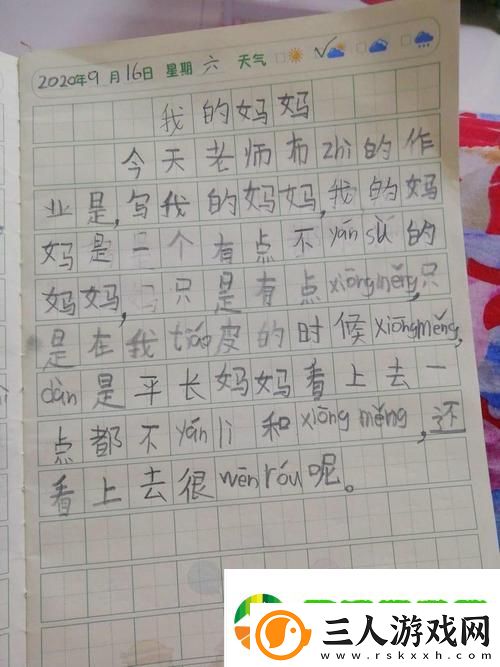 2020年9月16日 星期 六 天气
我的妈妈
今天老师布zhì的作
业是,写我的妈妈,我的妈
妈是一个有点不yán sù的
妈妈,只是有点xiōngměng,只
是在我tiáo皮的时候xiōngměng,
dàn是平长妈妈看上去一
点都不yán lì和xiōng měng,还
看上去很wēn róu呢。
三人游戏网
www.rskxxh.com